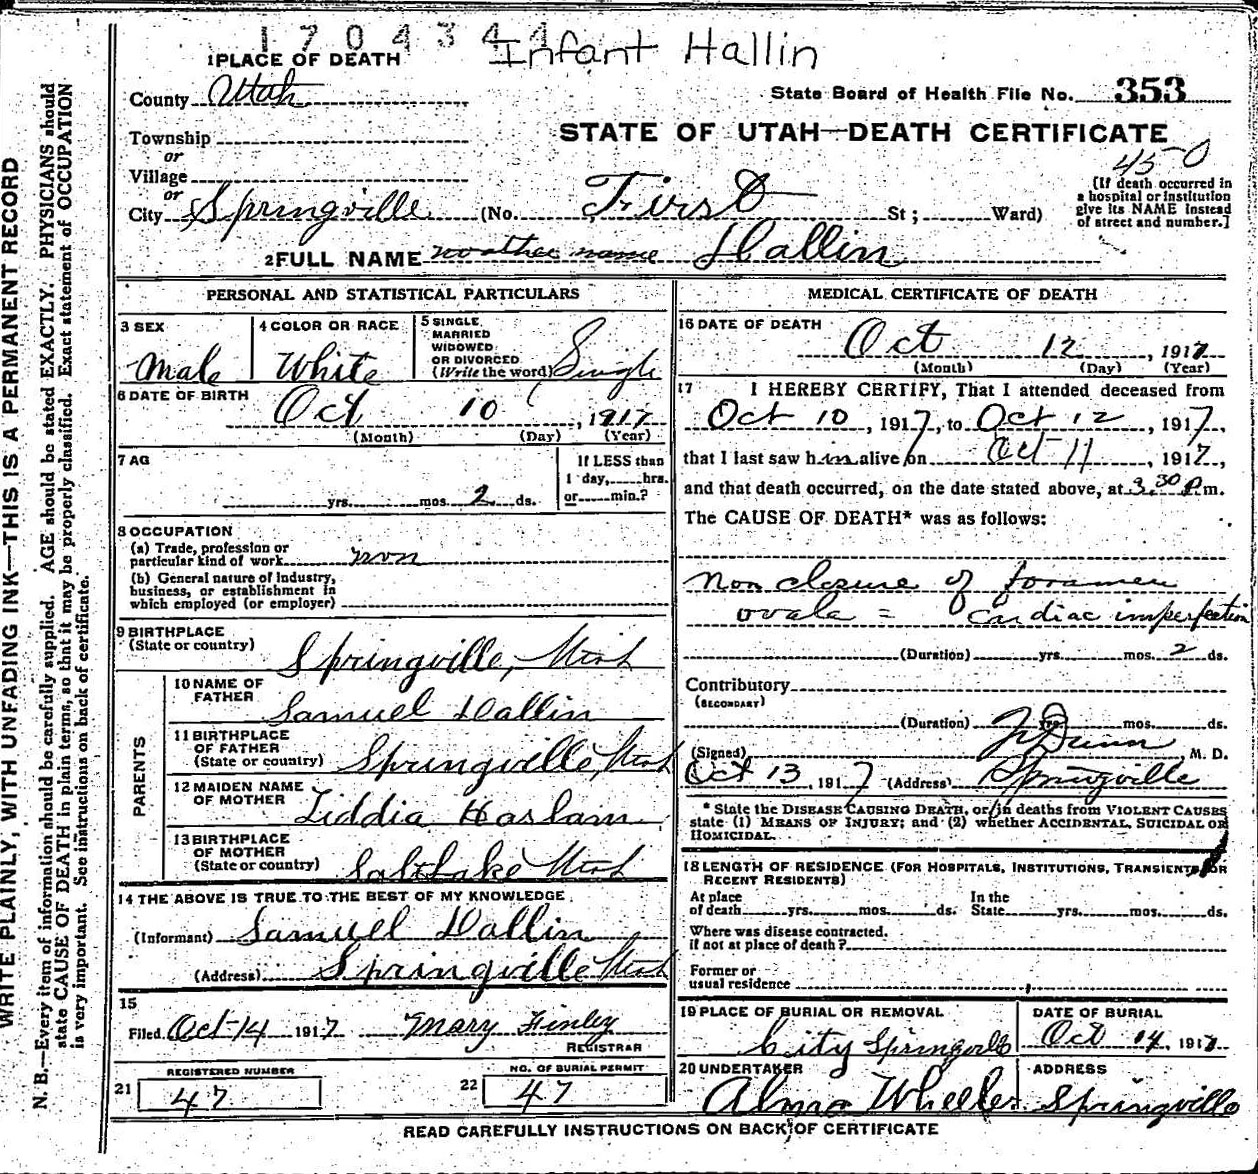 1704344
Infant Hallin
1 PLACE OF DEATH
County Utah
State Board of Health File No. 353
Township
STATE OF UTAH—DEATH CERTIFICATE
or
450
Village
or
City Springville (No. First St; Ward)
(If death occurred in
a hospital or institution
give its NAME instead
of street and number.]
2 FULL NAME no other name Hallin
PERSONAL AND STATISTICAL PARTICULARS
3 SEX
Male
4 COLOR OR RACE
White
5 SINGLE
MARRIED
WIDOWED
OR DIVORCED
(Write the word) Single
6 DATE OF BIRTH
Oct 10, 1917
(Month) (Day) (Year)
7 AG
yrs. mos. 2 ds.
If LESS than
1 day, hrs.
or min.?
8 OCCUPATION
(a) Trade, profession or
particular kind of work non
(b) General nature of Industry,
business, or establishment in
which employed (or employer)
9 BIRTHPLACE
(State or country) Springville, Utah
PARENTS
10 NAME OF
FATHER
Samuel Dallin
11 BIRTHPLACE
OF FATHER
(State or country) Springville Utah
12 MAIDEN NAME
OF MOTHER Liddia Haslam
13 BIRTHPLACE
OF MOTHER
(State or country) Salt Lake Utah
14 THE ABOVE IS TRUE TO THE BEST OF MY KNOWLEDGE
(Informant) Samuel Dallin
(Address) Springville Utah
15
Filed Oct 14 1917 Mary Finley
REGISTRAR
REGISTERED NUMBER
21 47
NO. OF BURIAL PERMIT
22 47
MEDICAL CERTIFICATE OF DEATH
16 DATE OF DEATH
Oct 12, 1917
(Month) (Day) (Year)
17 I HEREBY CERTIFY, That I attended deceased from
Oct 10, 1917, to Oct 12, 1917,
that I last saw him alive on Oct 11, 1917,
and that death occurred, on the date stated above, at 3.30 P.m.
The CAUSE OF DEATH* was as follows:
Non closure of foramen
ovala = Cardiac imperfection
(Duration) yrs. mos. 2 ds.
Contributory
(SECONDARY)
(Duration) yrs. mos. ds.
(Signed) Dunn M. D.
Oct 13, 1917 (Address) Springville
* State the DISEASE CAUSING DEATH, or, in deaths from VIOLENT CAUSES
state (1) MEANS OF INJURY; and (2) whether ACCIDENTAL, SUICIDAL OR
HOMICIDAL.
18 LENGTH OF RESIDENCE (FOR HOSPITALS, INSTITUTIONS, TRANSIENTS, OR
RECENT RESIDENTS)
At place
of death yrs. mos. ds.
In the
State yrs. mos. ds.
Where was disease contracted.
if not at place of death?
Former or
usual residence
19 PLACE OF BURIAL OR REMOVAL
City Springville
DATE OF BURIAL
Oct 14, 1917
20 UNDERTAKER
Almo Wheeler
ADDRESS
Springville
READ CAREFULLY INSTRUCTIONS ON BACK OF CERTIFICATE
WRITE PLAINLY, WITH UNFADING INK—THIS IS A PERMANENT RECORD
N. B.—Every item of information should be carefully supplied. AGE should be stated EXACTLY. PHYSICIANS should
state CAUSE OF DEATH in plain terms, so that it may be properly classified. Exact statement of OCCUPATION
is very important. See instructions on back of certificate.